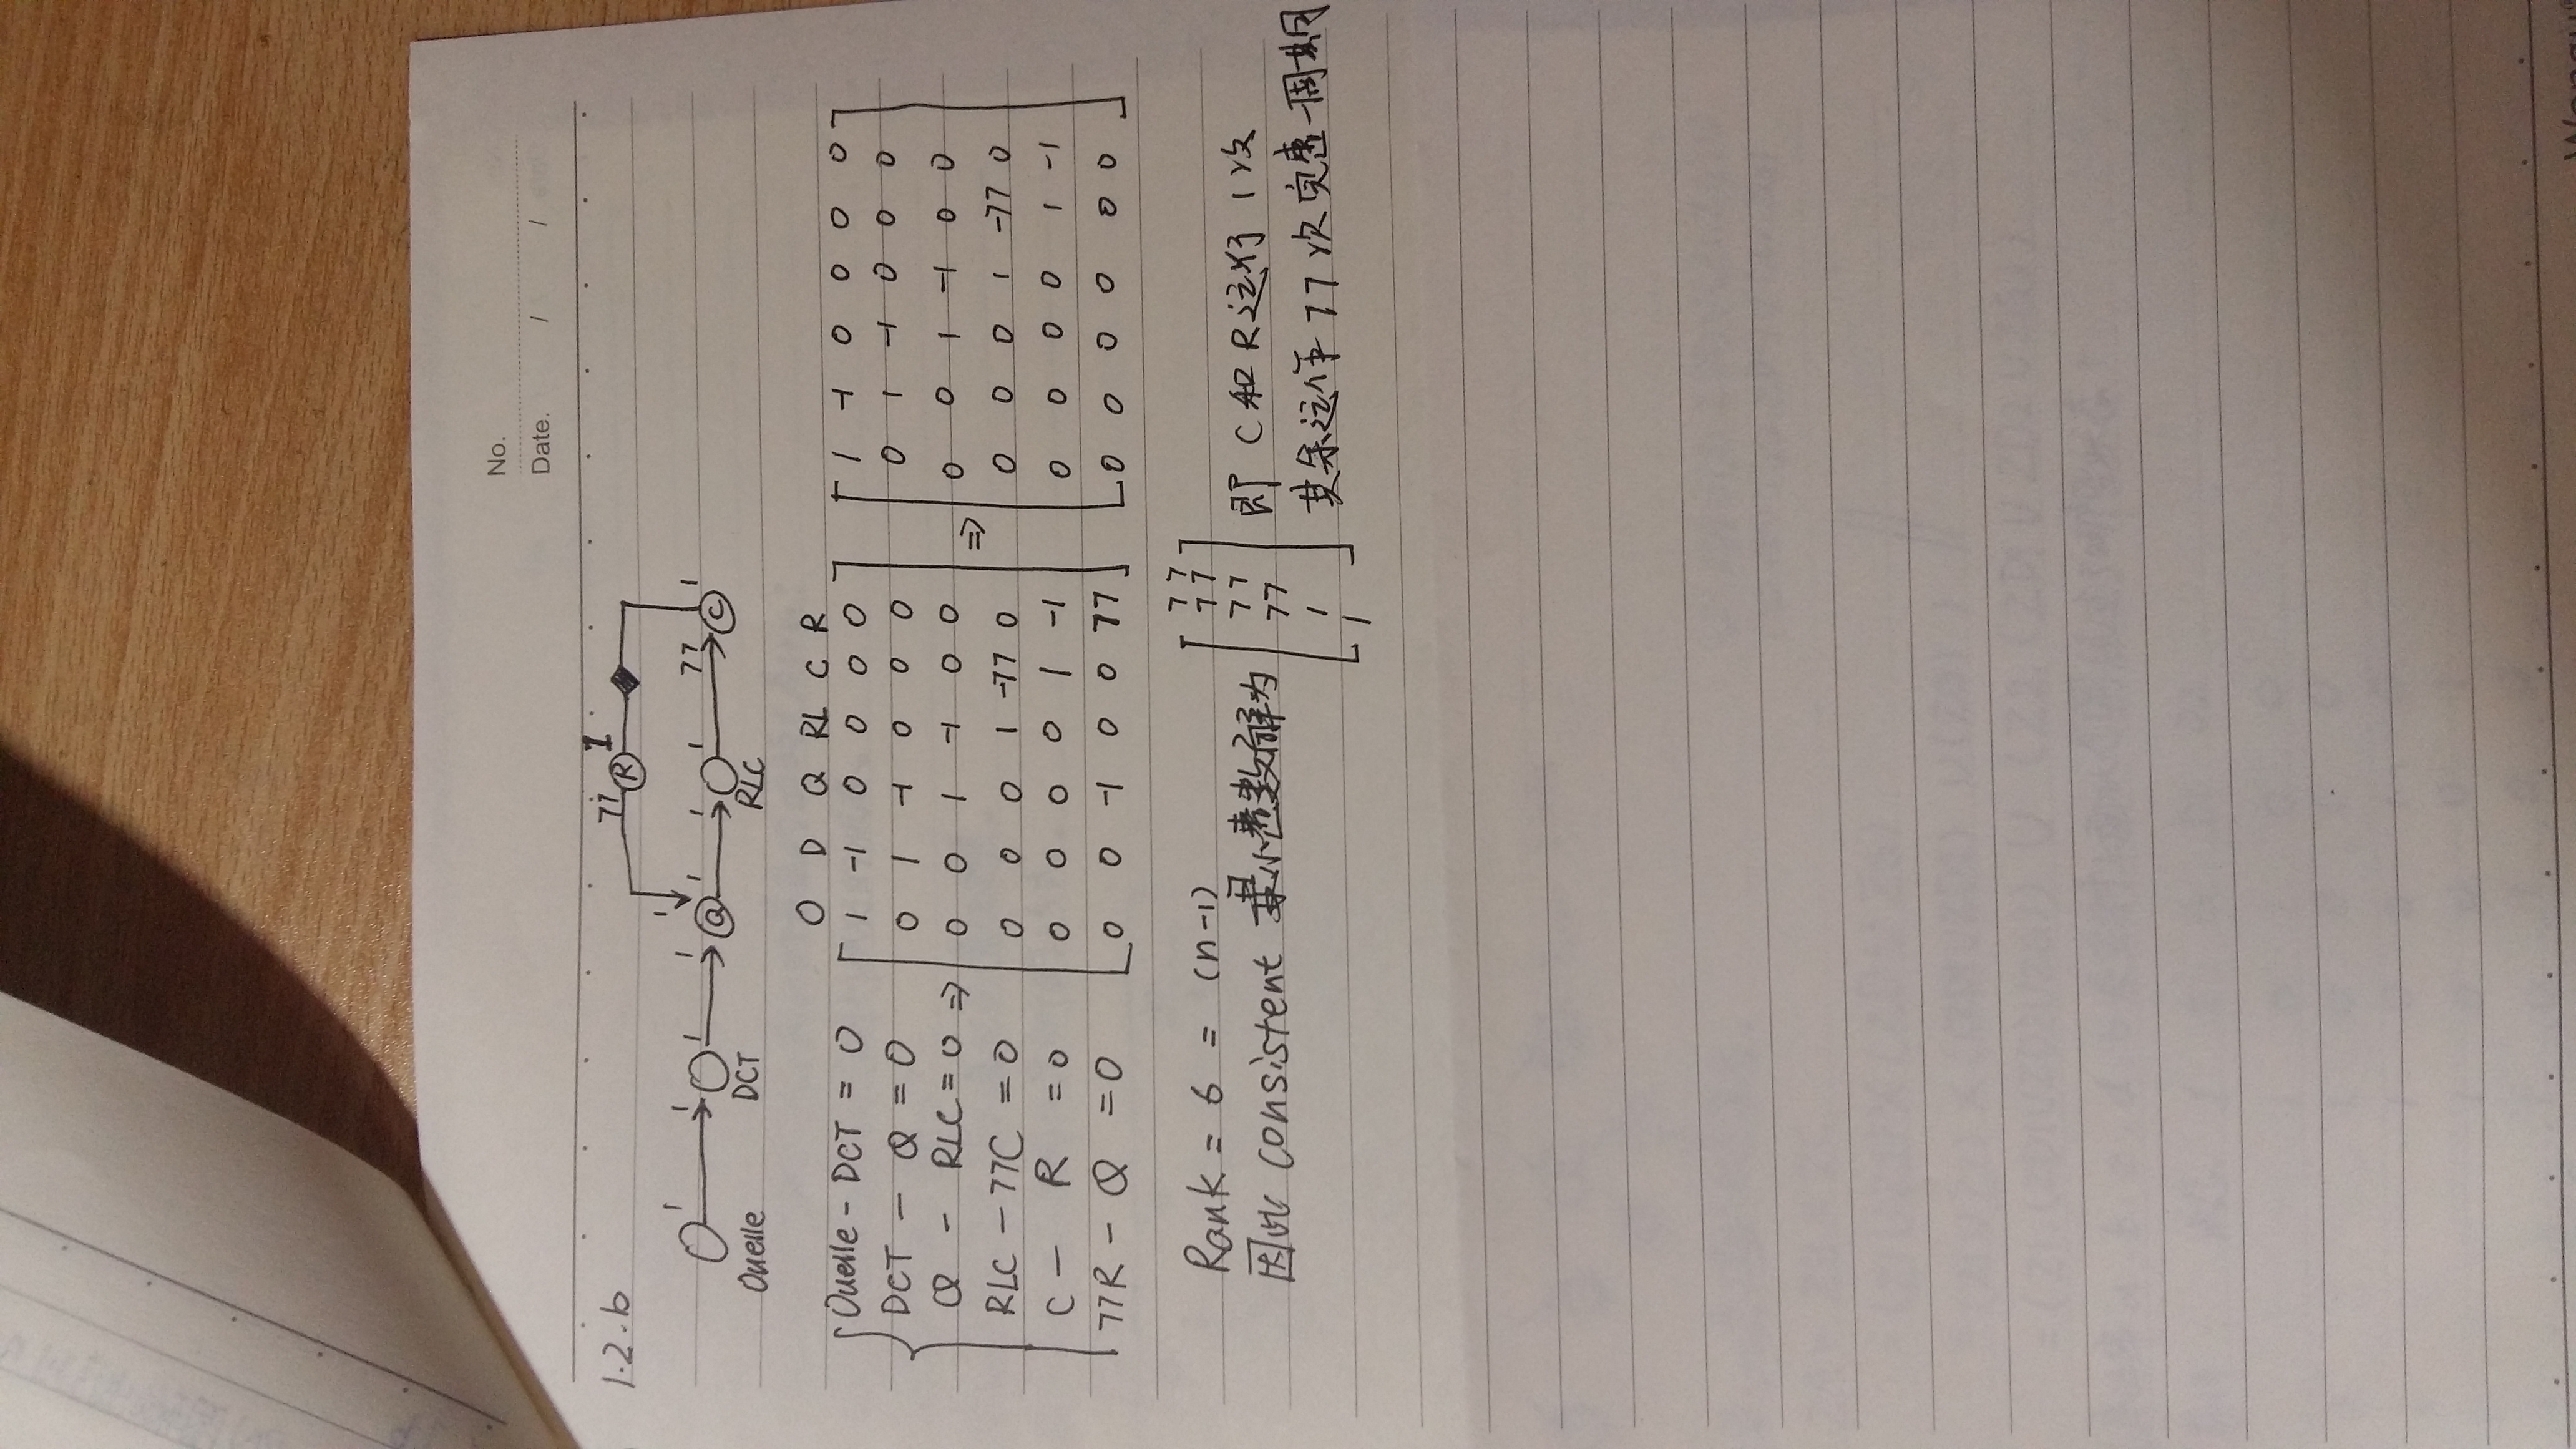 No.
Date. / /
1.2.b
77 R 1
1
1 1 1 1 Q 1 1 1 77 C 1
Quelle DCT RLC
O D Q RL C R
Quelle - DCT = 0
DCT - Q = 0
Q - RLC = 0 ⇒
RLC - 77C = 0
C - R = 0
77R - Q = 0
1 -1 0 0 0 0
0 1 -1 0 0 0
0 0 1 -1 0 0
0 0 0 1 -77 0
0 0 0 0 1 -1
0 0 -1 0 0 77
⇒
1 -1 0 0 0 0
0 1 -1 0 0 0
0 0 1 -1 0 0
0 0 0 1 -77 0
0 0 0 0 1 -1
0 0 0 0 0 0
Rank = 6 = (n-1)
因此 consistent 最小整数解为
77
77
77
77
1
1
即 C和R运行1次
其余运作77次完整一周期